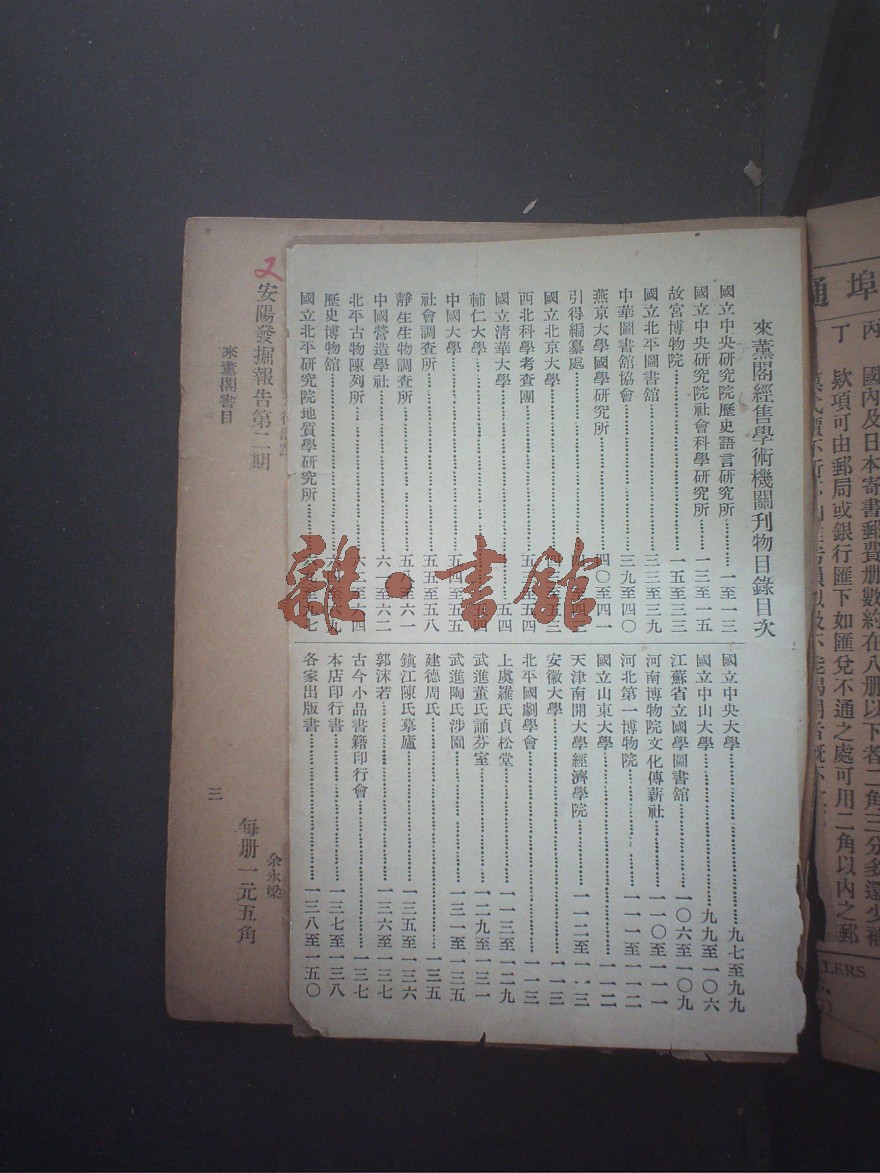 來薰閣經售學術機關刊物目錄目次
國立中央研究院歷史語言研究所……一至一三
國立中央研究院社會科學研究所……一三至一五
故宮博物院……一五至三三
國立北平圖書館……三三至三九
中華圖書館協會……三九至四〇
燕京大學國學研究所……四〇至四一
引得編纂處……
國立北京大學……至五三
西北科學考查團……五三至五四
國立清華大學……五四
輔仁大學……五四
中國大學……五四至五五
社會調查所……五五至五八
靜生生物調查所……五八至六一
中國營造學社……六一至六二
北平古物陳列所……六二至六四
歷史博物館……
國立北平研究院地質學研究所……
國立中央大學……九七至九九
國立中山大學……九九至一〇六
江蘇省立國學圖書館……一〇六至一〇九
河南博物院文化傳薪社……一一〇至一一一
河北第一博物院……一一一至一一二
國立山東大學……一一二
天津南開大學經濟學院……一一二至一一三
安徽大學……
北平國劇學會……一一三
上虞羅氏貞松堂……一一三至一二九
武進董氏誦芬室……一二九至一三一
武進陶氏涉園……一三一至一三五
建德周氏……一三五
鎮江陳氏摹廬……一三五至一三六
郭沫若……一三六至一三七
古今小品書籍印行會……一三七
本店印行書……一三七至一三八
各家出版書……一三八至一五〇
余永梁
又
安陽發掘報告第二期
每册一元五角
來薰閣書目
三
埠通
丙 國內及日本寄書郵費册數約在八册以下者二角三分多還少補
丁 欵項可由郵局或銀行匯下如匯兌不通之處可用二角以內之郵
雜·書館